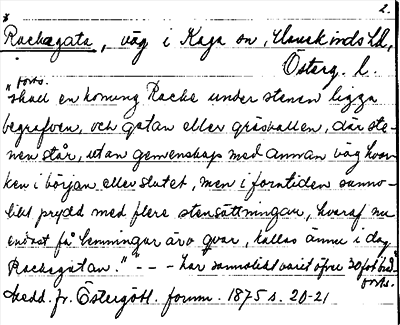 2.
Rackegata, väg i Kaga sn, Hanekinds hd,
Österg. l.
forts.
"skall en konung Racke under stenen ligga
begrafven, och gatan eller gräsvallen, där ste-
nen står, utan gemenskap med annan väg hvar-
ken i början eller slutet, men i forntiden sanno-
likt prydd med flere stensättningar, hvaraf nu
endast få lemningar äro qvar, kallas ännu i dag
Rackegatan." - - - har sannolikt varit öfver 30 fot bred
forts.
Medd. fr. Östergötl. fornm. 1875 s. 20-21